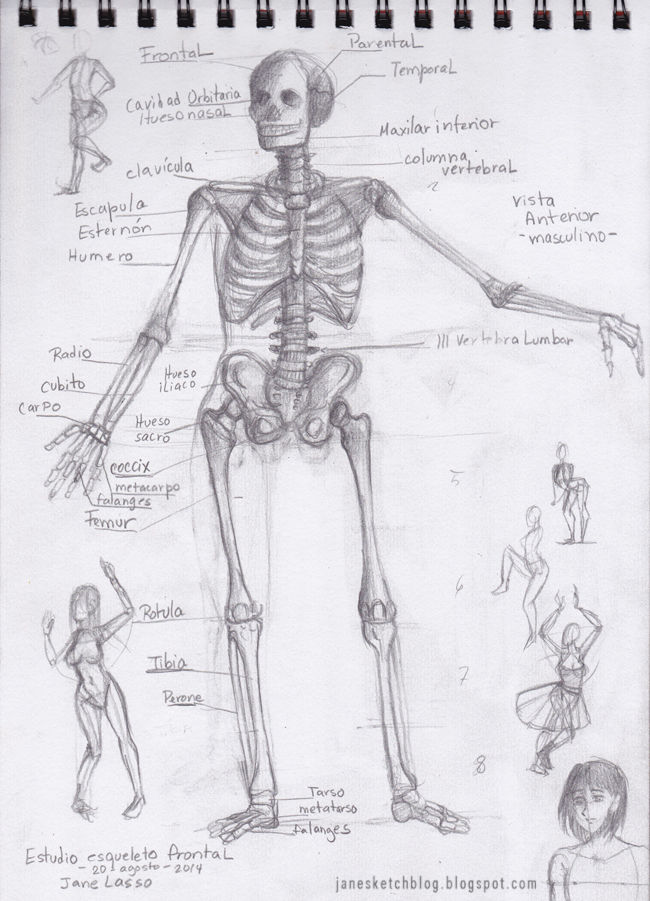 Frontal
Parental
Temporal
Cavidad Orbitaria
Hueso nasal
Maxilar inferior
columna
vertebral
clavícula
2
Escapula
Esternón
Humero
vista
Anterior
-masculino-
III Vertebra Lumbar
Radio
Cubito
Carpo
Hueso
iliaco
4
Hueso
sacro
coccix
metacarpo
falanges
Femur
5
6
Rotula
Tibia
7
Perone
8
Tarso
metatarso
falanges
Estudio esqueleto frontal
-20 agosto-2014
Jane Lasso
janesketchblog.blogspot.com